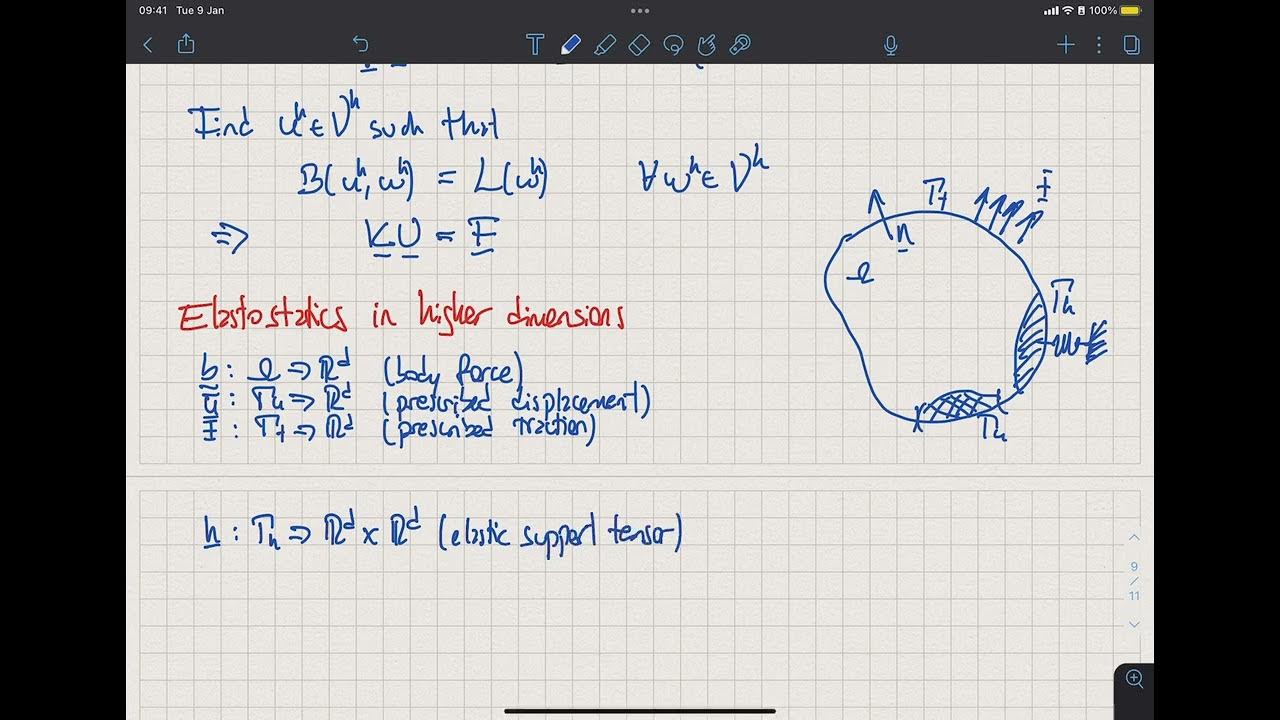 09:41 Tue 9 Jan
100%
Find uʰ ∈ Vʰ such that
B(uʰ, wʰ) = L(wʰ) ∀wʰ ∈ Vʰ
⇒ K U = F
Elastostatics in higher dimensions
b : Ω ⇒ ℝᵈ (body force)
ū : Γu ⇒ ℝᵈ (prescribed displacement)
t̄ : Γt ⇒ ℝᵈ (prescribed traction)
Γt
t̄
n
Ω
Γh
Γu
h : Γh ⇒ ℝᵈ x ℝᵈ (elastic support tensor)
9
/
11